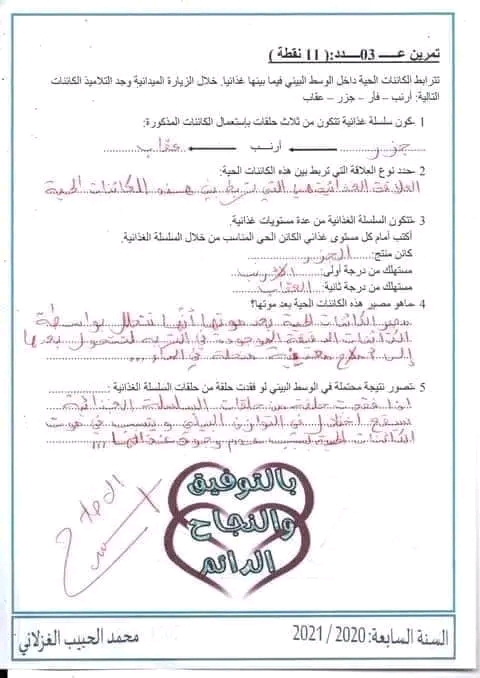 تمرين عــــ 03ــــدد:( 11 نقطة )
تترابط الكائنات الحية داخل الوسط البيئي فيما بينها غذائيا. خلال الزيارة الميدانية وجد التلاميذ الكائنات
التالية: أرنب – فأر – جزر – عقاب
1 -كون سلسلة غذائية تتكون من ثلاث حلقات بإستعمال الكائنات المذكورة:
جزر ← أرنب ← عقاب
2 -حدد نوع العلاقة التي تربط بين هذه الكائنات الحية:
العلاقة الغذائية هيا التي تربط بين هذه الكائنات الحية
3 -تتكون السلسلة الغذائية من عدة مستويات غذائية.
أكتب أمام كل مستوى غذائي الكائن الحي المناسب من خلال السلسلة الغذائية.
كائن منتج: الجزر
مستهلك من درجة أولى: الأرنب
مستهلك من درجة ثانية: العقاب
4 -ماهو مصير هذه الكائنات الحية بعد موتها؟
مصير الكائنات الحية بعد موتها أنها تتحلل بواسطة
الكائنات الدقيقة الموجودة في التربة لتتحول بعدها
إلى أملاح معدنية منحلة في الماء...
5 -تصور نتيجة محتملة في الوسط البيئي لو فقدت حلقة من حلقات السلسلة الغذائية :
إذا فقدت حلقة من حلقات السلسلة الغذائية
سيقع اختلال في التوازن البيئي و يتسبب في موت
الكائنات الحية بسبب عدم وجود غذائها...
بالتوفيق
والنجاح
الدائم
الإصلاح
السنة السابعة: 2020 / 2021
محمد الحبيب الغزلاني